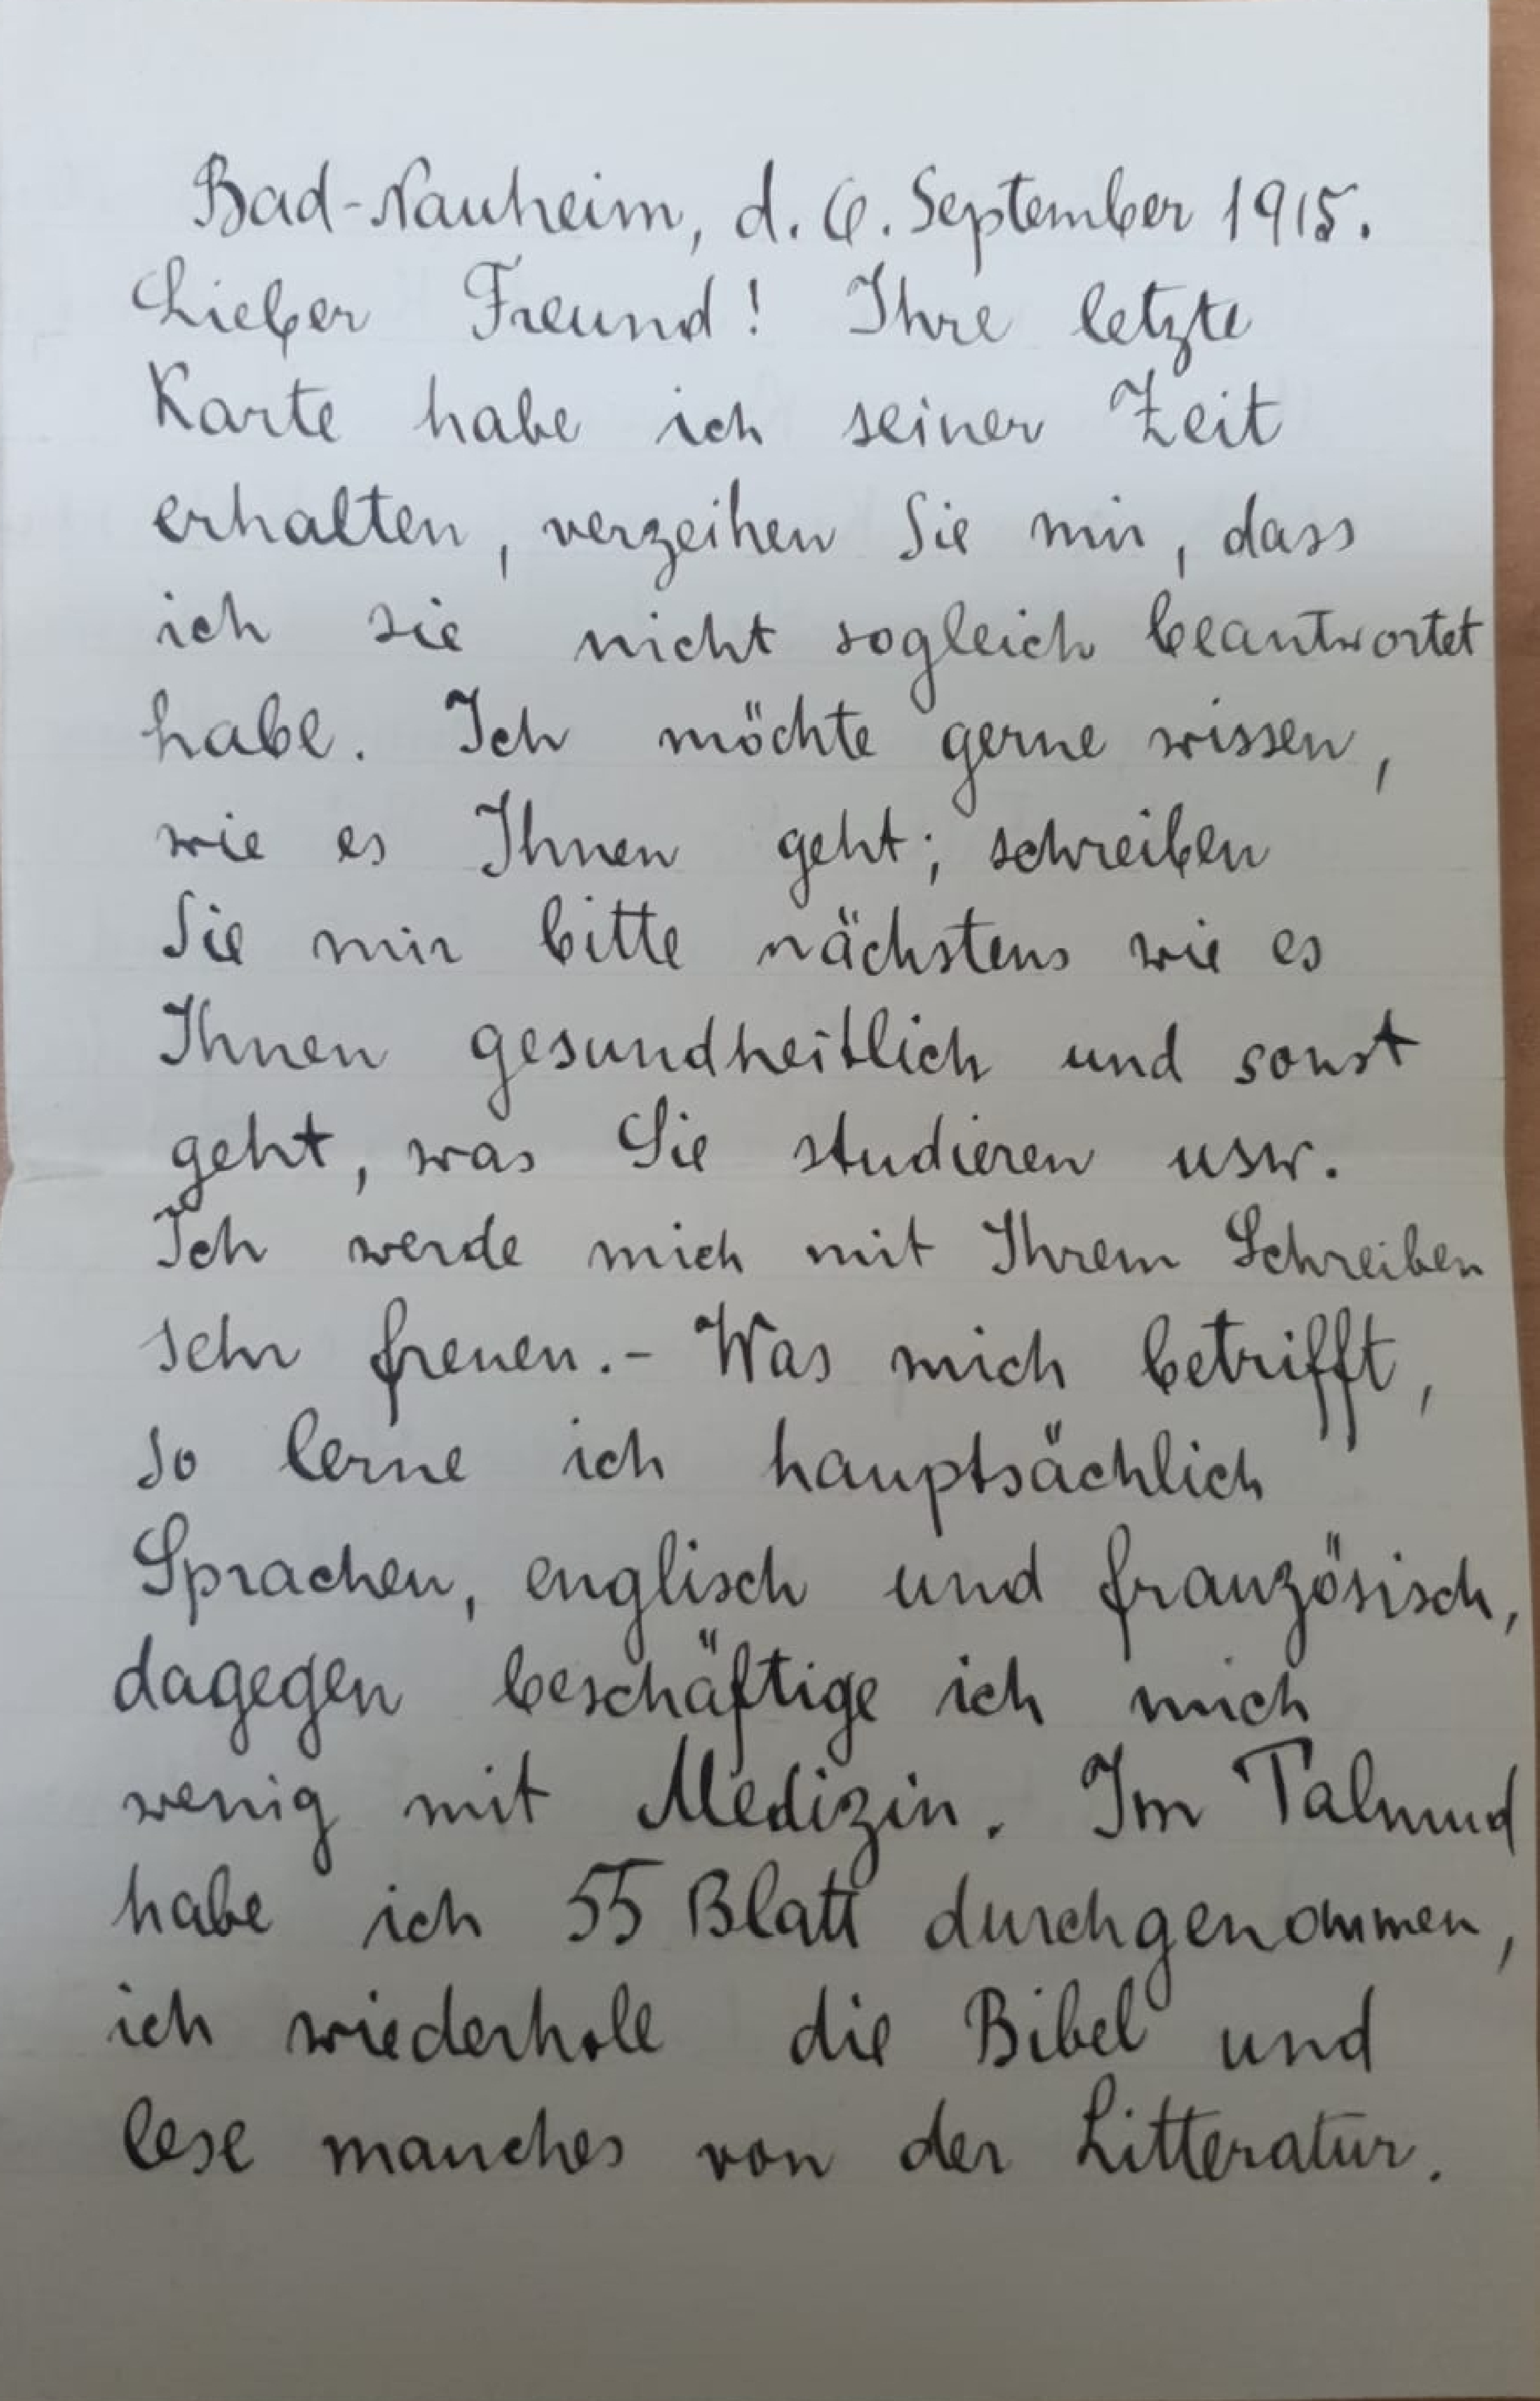 Bad-Nauheim, d. 6. September 1915.
Lieber Freund! Ihre letzte
Karte habe ich seiner Zeit
erhalten, verzeihen Sie mir, dass
ich sie nicht sogleich beantwortet
habe. Ich möchte gerne wissen,
wie es Ihnen geht; schreiben
Sie mir bitte nächstens wie es
Ihnen gesundheitlich und sonst
geht, was Sie studieren usw.
Ich werde mich mit Ihrem Schreiben
sehr freuen.- Was mich betrifft,
so lerne ich hauptsächlich
Sprachen, englisch und französisch,
dagegen beschäftige ich mich
wenig mit Medizin. Im Talmud
habe ich 55 Blatt durchgenommen,
ich wiederhole die Bibel und
lese manches von der Litteratur.